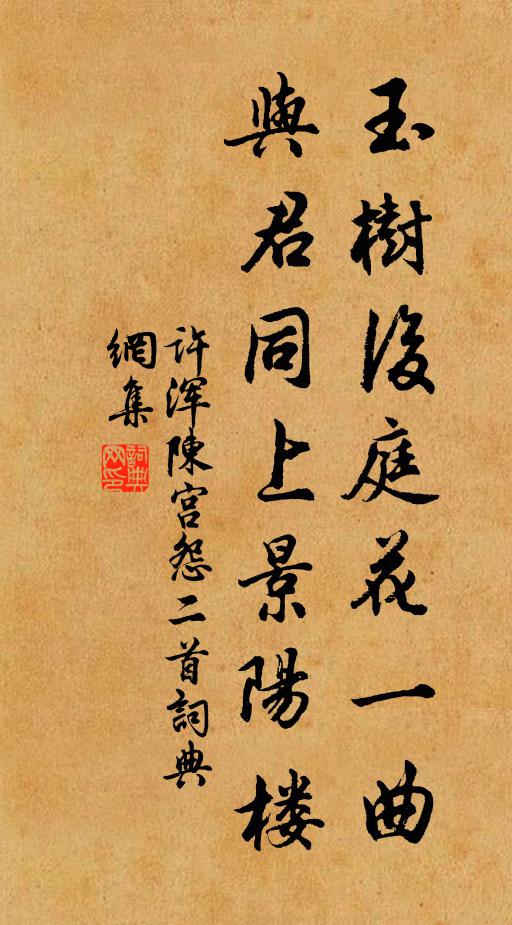 玉樹後庭花一曲
與君同上景陽楼
許渾陳宫怨二首詞典
網集
詞典
网印